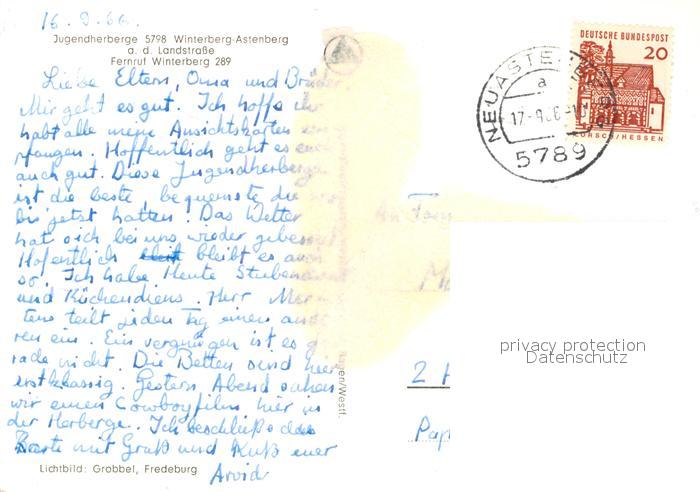 16. 9. 66.
Jugendherberge 5798 Winterberg-Astenberg
a. d. Landstraße
Fernruf Winterberg 289
Liebe Eltern, Oma und Brüder
Mir geht es gut. Ich hoffe ihr
habt alle meine Ansichtskarten em
pfangen. Hoffentlich geht es euch
auch gut. Diese Jugendherberge
ist die beste, bequemste die wir
bis jetzt hatten. Das Wetter
hat sich bei uns wieder gebessert
Hofentlich bleibt es auch
so. Ich habe Heute Stuben
und Küchendiens. Herr Mer
tens teilt jeden Tag einen ande
ren ein. Ein vergnügen ist es g
rade nicht. Die Betten sind hier
erstklassig. Gestern Abend sahen
wir einen Cowboyfilm hier in
der Herberge. Ich beschließe das
Beste mit Gruß und Kuß euer
Arvid
Lichtbild: Grobbel, Fredeburg
DEUTSCHE BUNDESPOST
20
LORSCH/HESSEN
NEUASTE
a
17.-9.66-
5789
An Fam
2 H
Pap
hagen/Westf.
privacy protection
Datenschutz